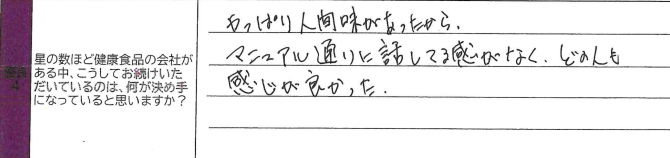 質問
4
星の数ほど健康食品の会社が
ある中、こうしてお続けいた
だいているのは、何が決め手
になっていると思いますか？
やっぱり人間味があったから。
マニュアル通りに話してる感がなく、どの人も
感じが良かった。